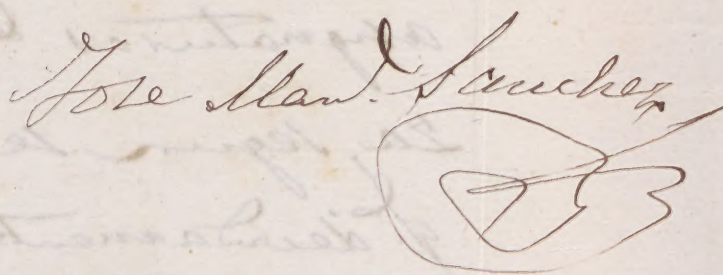 Jose Manl. Sanchez